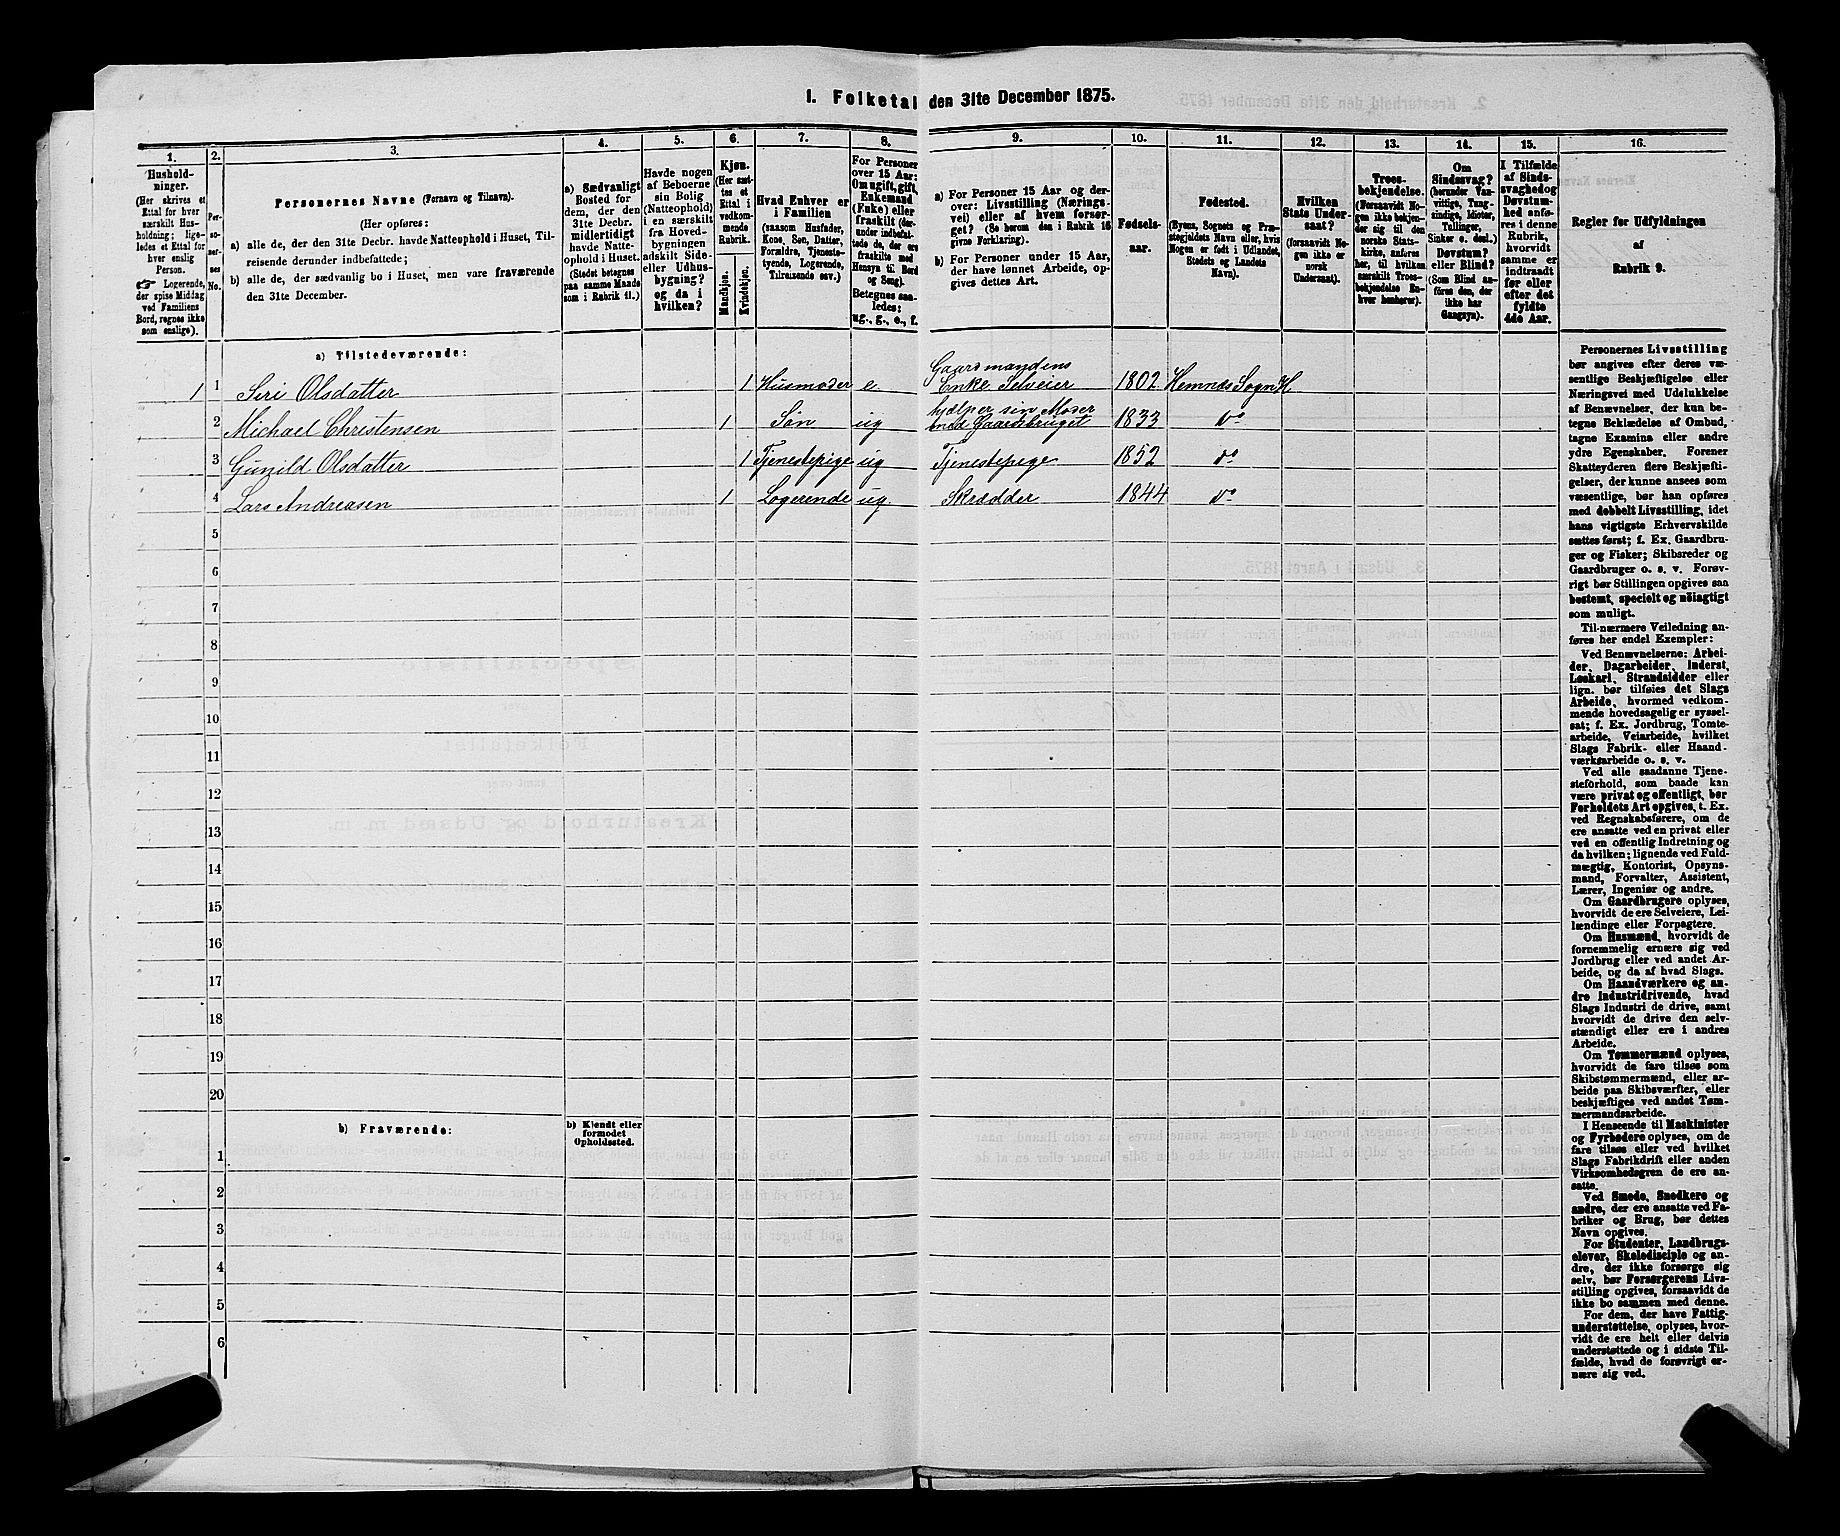 1. Folketal den 31te December 1875.
1.
Hushold-
ninger.
(Her skrives et
Ettal for hver
særskilt Hus-
holdning; lige-
ledes et Ettal for
hver enslig
Person.
☞ Logerende,
der spise Middag
ved Familiens
Bord, regnes ikke
som enslige).
2.
Per-
so-
ner-
nes
No.
3.
Personernes Navne (Fornavn og Tilnavn).
(Her opføres:
a) alle de, der den 31te Decbr. havde Natteophold i Huset, Til-
reisende derunder indbefattede;
b) alle de, der sædvanlig bo i Huset, men vare fraværende
den 31te December.
4.
a) Sædvanligt
Bosted for
dem, der den
31te Decbr.
midlertidigt
havde Natte-
ophold i Huset.
(Stedet betegnes
paa samme Maade
som i Rubrik 11.)
5.
Havde nogen
af Beboerne
sin Bolig
(Natteophold)
i en særskilt
fra Hoved-
bygningen
adskilt Side-
eller Udhus-
bygning?
og da i
hvilken?
6.
Kjøn.
(Her sæt-
tes et
Ettal i
vedkom-
mende
Rubrik.
Mandkjøn.
Kvindekjøn.
7.
Hvad Enhver er
i Familien
(saasom Husfader,
Kone, Søn, Datter,
Forældre, Tjeneste-
tyende, Logerende,
Tilreisende osv.)
8.
For Personer
over 15 Aar:
Om ugift, gift,
Enkemand
(Enke) eller
fraskilt (der-
under indbefat-
tede de, der ere
fraskilte med
Hensyn til Bord
og Seng).
Betegnes saa-
ledes:
ug., g., e., f.
9.
a) For Personer 15 Aar og der-
over: Livsstilling (Nærings-
vei) eller af hvem forsør-
get? (Se herom den i Rubrik 16
givne Forklaring).
b) For Personer under 15 Aar,
der have lønnet Arbeide, op-
gives dettes Art.
10.
Fødsels-
aar.
11.
Fødested.
(Byens, Sognets og Præste-
gjeldets Navn eller, hvis
Nogen er født i Udlandet,
Stedets og Landets
Navn).
12.
Hvilken
Stats Under-
saat?
(forsaavidt No-
gen ikke er
norsk
Undersaat).
13.
Troes-
bekjendelse.
(Forsaavidt No-
gen ikke bekjen-
der sig til den
norske Stats-
kirke, anføres
her, til hvilken
særskilt Troes-
bekjendelse En-
hver henhører).
14.
Om
Sindssvag?
(herunder Van-
vittige, Tung-
sindige, Idioter,
Tullinger,
Sinker o. desl.)
Døvstum?
eller Blind?
(Som Blind an-
føres den, der
ikke har
Gangsyn).
15.
I Tilfælde
af Sinds-
svaghed og
Døvstum-
hed anfø-
res i denne
Rubrik,
hvorvidt
samme er
indtraadt
før eller
efter det
fyldte
4de Aar.
16.
Regler for Udfyldningen
af
Rubrik 9.
a) Tilstedeværende:
1 1 Siri Olsdatter 1 Husmoder e. Gaardmandens
Enke Selveier 1802 Hemnæs Sogn H
2 Michael Christensen 1 Søn ug hjælper sin Moder
med Gaardsbruget 1833 do
3 Gunild Olsdatter 1 Tjenestepige ug Tjenestepige 1852 do
4 Lars Andreasen 1 Logerende ug. Skrædder 1844 do
5
6
7
8
9
10
11
12
13
14
15
16
17
18
19
20
b) Fraværende:
b) Kjendt eller
formodet
Opholdssted.
1
2
3
4
5
6
Personernes Livsstilling
bør angives efter deres væ-
sentlige Beskjæftigelse eller
Næringsvei med Udelukkelse
af Benævnelser, der kun be-
tegne Beklædelse af Ombud,
tagne Examina eller andre
ydre Egenskaber. Forener
Skatteyderen flere Beskjæfti-
gelser, der kunne ansees som
væsentlige, bør han opføres
med dobbelt Livsstilling, idet
hans vigtigste Erhvervskilde
sættes først; f. Ex. Gaardbru-
ger og Fisker; Skibsreder og
Gaardbruger o. s. v. Forøv-
rigt bør Stillingen opgives saa
bestemt, specielt og nøiagtigt
som muligt.
Til nærmere Veiledning an-
føres her endel Exempler:
Ved Benævnelserne: Arbei-
der, Dagarbeider, Inderst,
Løskarl, Strandsidder eller
lign. bør tilføies det Slags
Arbeide, hvormed vedkom-
mende hovedsagelig er syssel-
sat; f. Ex. Jordbrug, Tomte-
arbeide, Veiarbeide, hvilket
Slags Fabrik- eller Haand-
værksarbeide o. s. v.
Ved alle saadanne Tjene-
steforhold, som baade kan
være privat og offentligt, bør
Forholdets Art opgives, t. Ex.
ved Regnskabsførere, om de
ere ansatte ved en privat eller
ved en offentlig Indretning og
da hvilken; lignende ved Fuld-
mægtig, Kontorist, Opsyns-
mand, Forvalter, Assistent,
Lærer, Ingeniør og andre.
Om Gaardbrugere oplyses,
hvorvidt de ere Selveiere, Lei-
lændinge eller Forpagtere.
Om Husmænd, hvorvidt de
fornemmelig ernære sig ved
Jordbrug eller ved andet Ar-
beide, og da af hvad Slags.
Om Haandværkere og an-
dre Industridrivende, hvad
Slags Industri de drive, samt
hvorvidt de drive den selv-
stændigt eller ere i andres
Arbeide.
Om Tømmermænd oplyses,
hvorvidt de fare tilsøs som
Skibstømmermænd, eller ar-
beide paa Skibsværfter, eller
beskjæftiges ved andet Tøm-
mermandsarbeide.
I Henseende til Maskinister
og Fyrbødere oplyses, om de
fare tilsøs eller ved hvilket
Slags Fabrikdrift eller anden
Virksomhedsgren de ere an-
satte.
Ved Smede, Snedkere og
andre, der ere ansatte ved Fa-
briker og Brug, bør dettes
Navn opgives.
For Studenter, Landbrugs-
elever, Skoledisciple og an-
dre, der ikke forsørge sig
selv, bør Forsørgerens Livs-
stilling opgives, forsaavidt de
ikke bo sammen med denne.
For dem, der have Fattig-
understøttelse, oplyses, hvor-
vidt de ere helt eller delvis
understøttede og i sidste Til-
fælde, hvad de forøvrigt er-
nære sig ved.